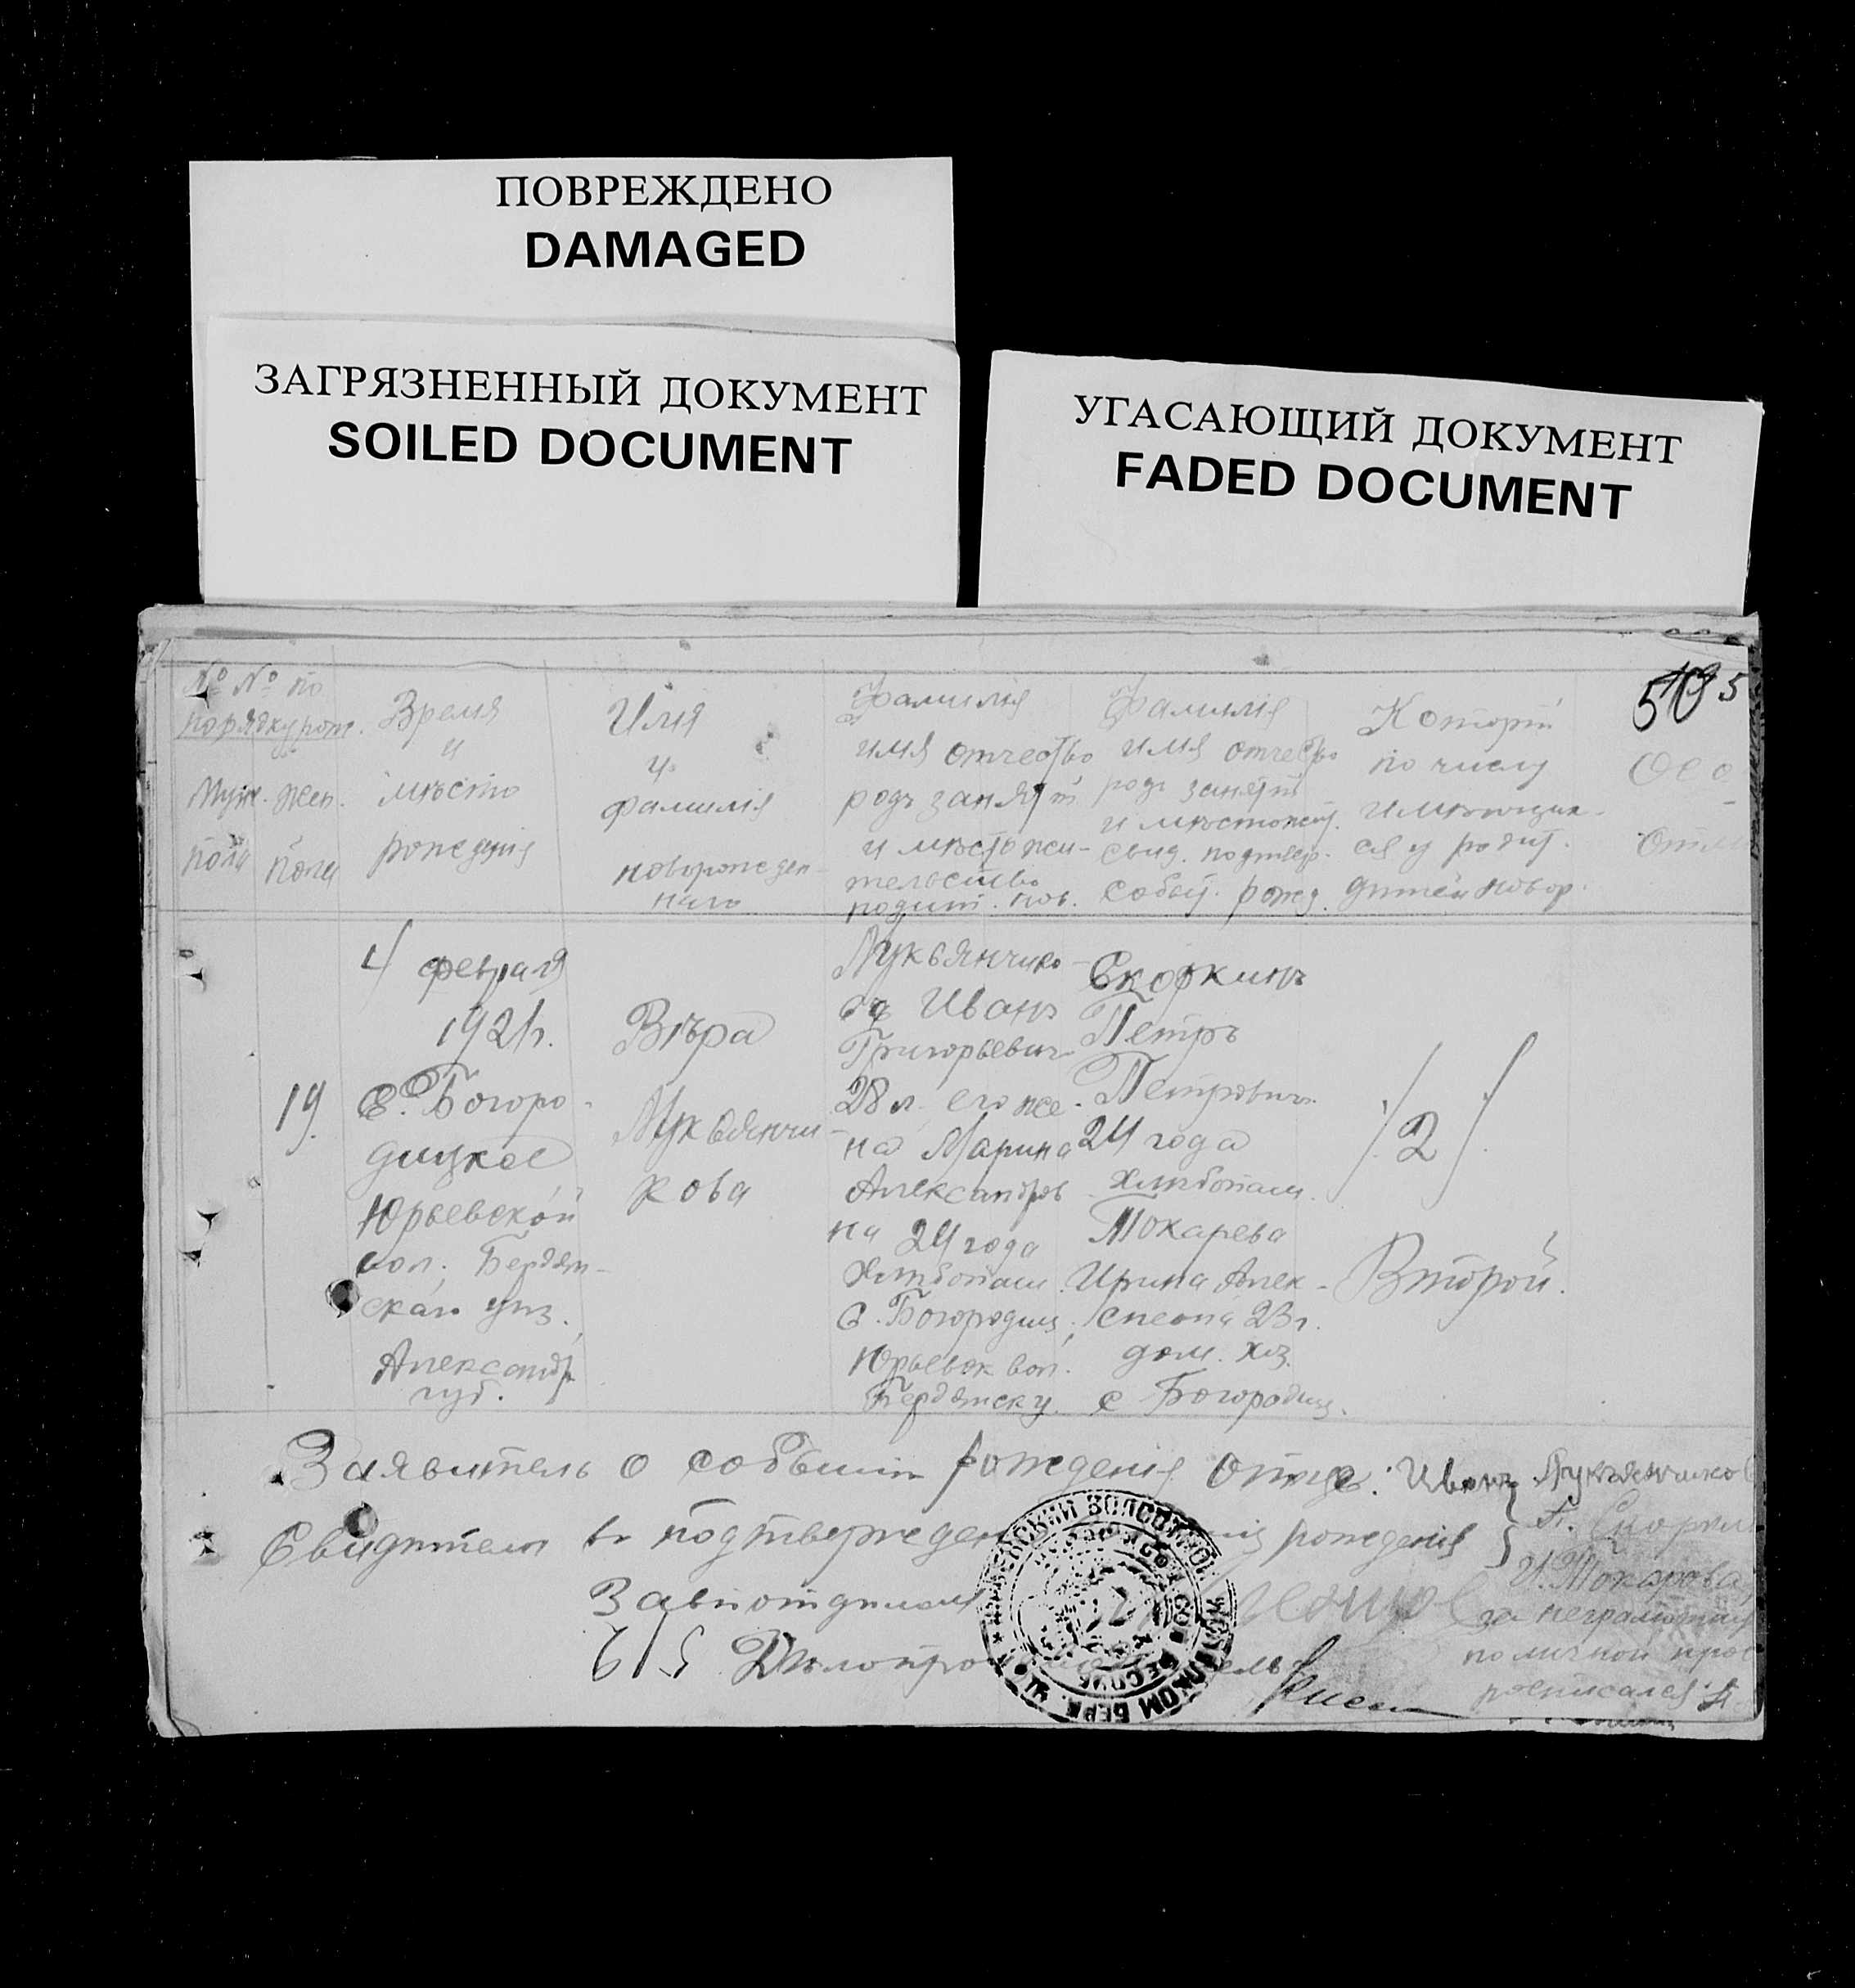 ПОВРЕЖДЕНО
DAMAGED
ЗАГРЯЗНЕННЫЙ ДОКУМЕНТ
SOILED DOCUMENT
УГАСАЮЩИЙ ДОКУМЕНТ
FADED DOCUMENT
№ № по
порядку рож.
Муж. Жен.
пола пола
Время
и
мѣсто
рожденія
Имя
и
фамилія
новорожден-
наго
Фамилія
имя отчество
родъ занятій
и мѣстожи-
тельство
родит. нов.
Фамилія
имя отчество
родъ занятій
и мѣстожит.
свид. подтвер.
событ. рожд.
Который
по числу
имѣющих-
ся у родит.
дѣтей новор.
19.
4 февраля
1921г.
С. Богоро-
дицкое
Юрьевской
вол. Бердян-
скаго уѣз.
Александр.
губ.
Вѣра
Лукьянчи-
кова
Лукьянчико-
въ Иванъ
Григорьевич
28 л. его же-
на Марина
Александров
на 24 года
Хлѣбопаш.
С. Богородиц.
Юрьевск вол.
Бердянск у.
Скоркинъ
Петръ
Петрович
24 года
хлѣбопаш.
Токарева
Ирина Алек-
сѣевна 23 г.
дом. хоз.
с Богородиц.
/2/
Второй.
Заявитель о событіи рожденія отец: Иванъ Лукьянчиков
Свидѣтели въ подтвержден рожденія } П. Скоркин
И. Токарева,
за неграмотн
по личной прос
росписался П.
Завподотделом
Дѣлопро